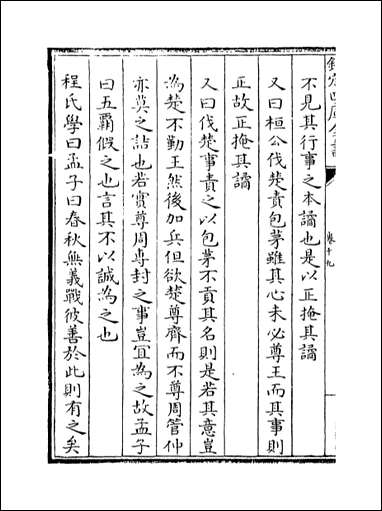 欽定四庫全書
卷十九
不見其行事之本譎也是以正掩其譎
又曰桓公伐楚責包茅雖其心未必尊王而其事則
正故正掩其譎
又曰伐楚事責之以包茅不貢其名則是若其意豈
為楚不勤王然後加兵但欲楚尊齊而不尊周管仲
亦莫之詰也若實尊周専封之事豈宜為之故孟子
曰五霸假之也言其不以誠為之也
程氏學曰孟子曰春秋無義戰彼善於此則有之矣